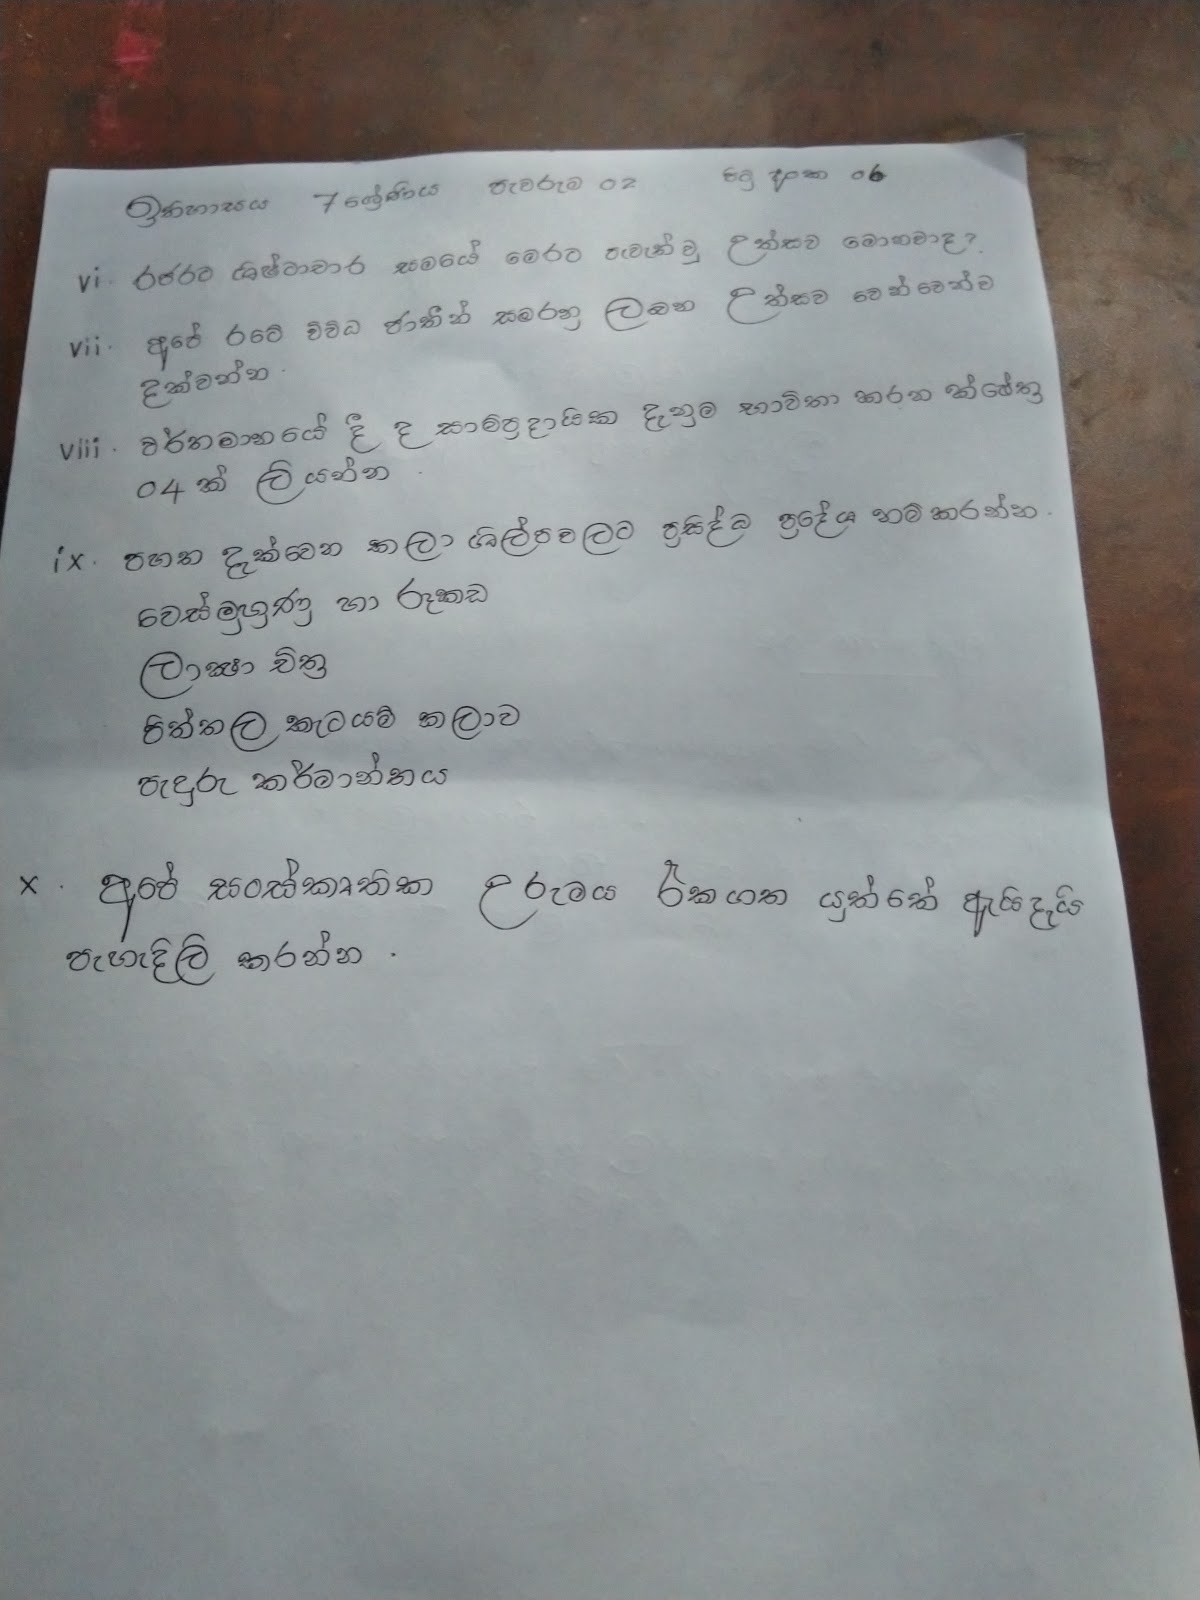 ඉතිහාසය 7 ශ්‍රේණිය පැවරුම 02 පිටු අංක 06
vi. රජරට ශිෂ්ටාචාර සමයේ මෙරට පැවැත්වූ උත්සව මොනවාද?
vii. අපේ රටේ විවිධ ජාතීන් සමරනු ලබන උත්සව වෙන්වෙන්ව
දක්වන්න.
viii. වර්තමානයේ දී ද සාම්ප්‍රදායික දැනුම භාවිතා කරන ක්ෂේත්‍ර
04 ක් ලියන්න.
ix. පහත දැක්වෙන කලා ශිල්පවලට ප්‍රසිද්ධ ප්‍රදේශ නම් කරන්න.
වෙස්මුහුණු හා රූකඩ
ලාක්ෂා චිත්‍ර
පිත්තල කැටයම් කලාව
පැදුරු කර්මාන්තය
x. අපේ සංස්කෘතික උරුමය රැකගත යුත්තේ ඇයිදැයි
පැහැදිලි කරන්න.